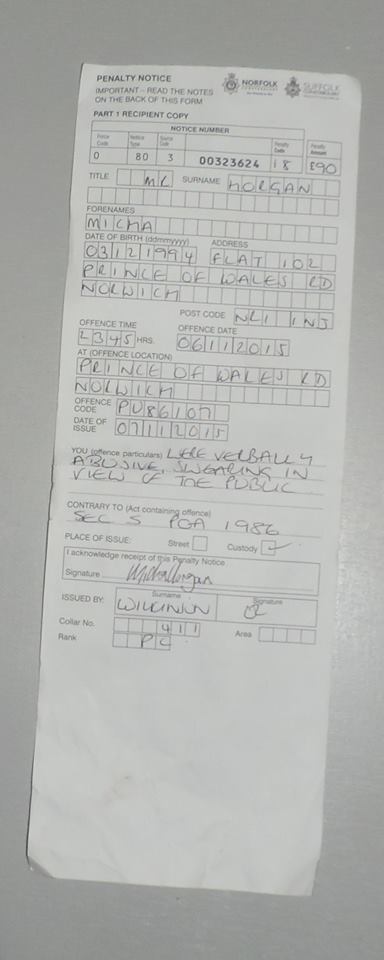 PENALTY NOTICE
IMPORTANT – READ THE NOTES
ON THE BACK OF THIS FORM
NORFOLK
SUFFOLK
PART 1 RECIPIENT COPY
NOTICE NUMBER
Force Code Notice Type Source Code Penalty Code Penalty Amount
0 80 3 00323624 18 £90
TITLE MR SURNAME MORGAN
FORENAMES
MICHA
DATE OF BIRTH (ddmmyyyy) ADDRESS
03121994 FLAT 102
PRINCE OF WALES RD
NORWICH
POST CODE NR1 1NJ
OFFENCE TIME OFFENCE DATE
2345 HRS. 06112015
AT (OFFENCE LOCATION)
PRINCE OF WALES RD
NORWICH
OFFENCE CODE PU86107
DATE OF ISSUE 07112015
YOU (offence particulars) WERE VERBALLY
ABUSIVE, SWEARING IN
VIEW OF THE PUBLIC
CONTRARY TO (Act containing offence)
SEC 5 POA 1986
PLACE OF ISSUE: Street Custody ✓
I acknowledge receipt of this Penalty Notice
Signature
ISSUED BY: Surname Signature
Collar No. 411 Area
Rank PC